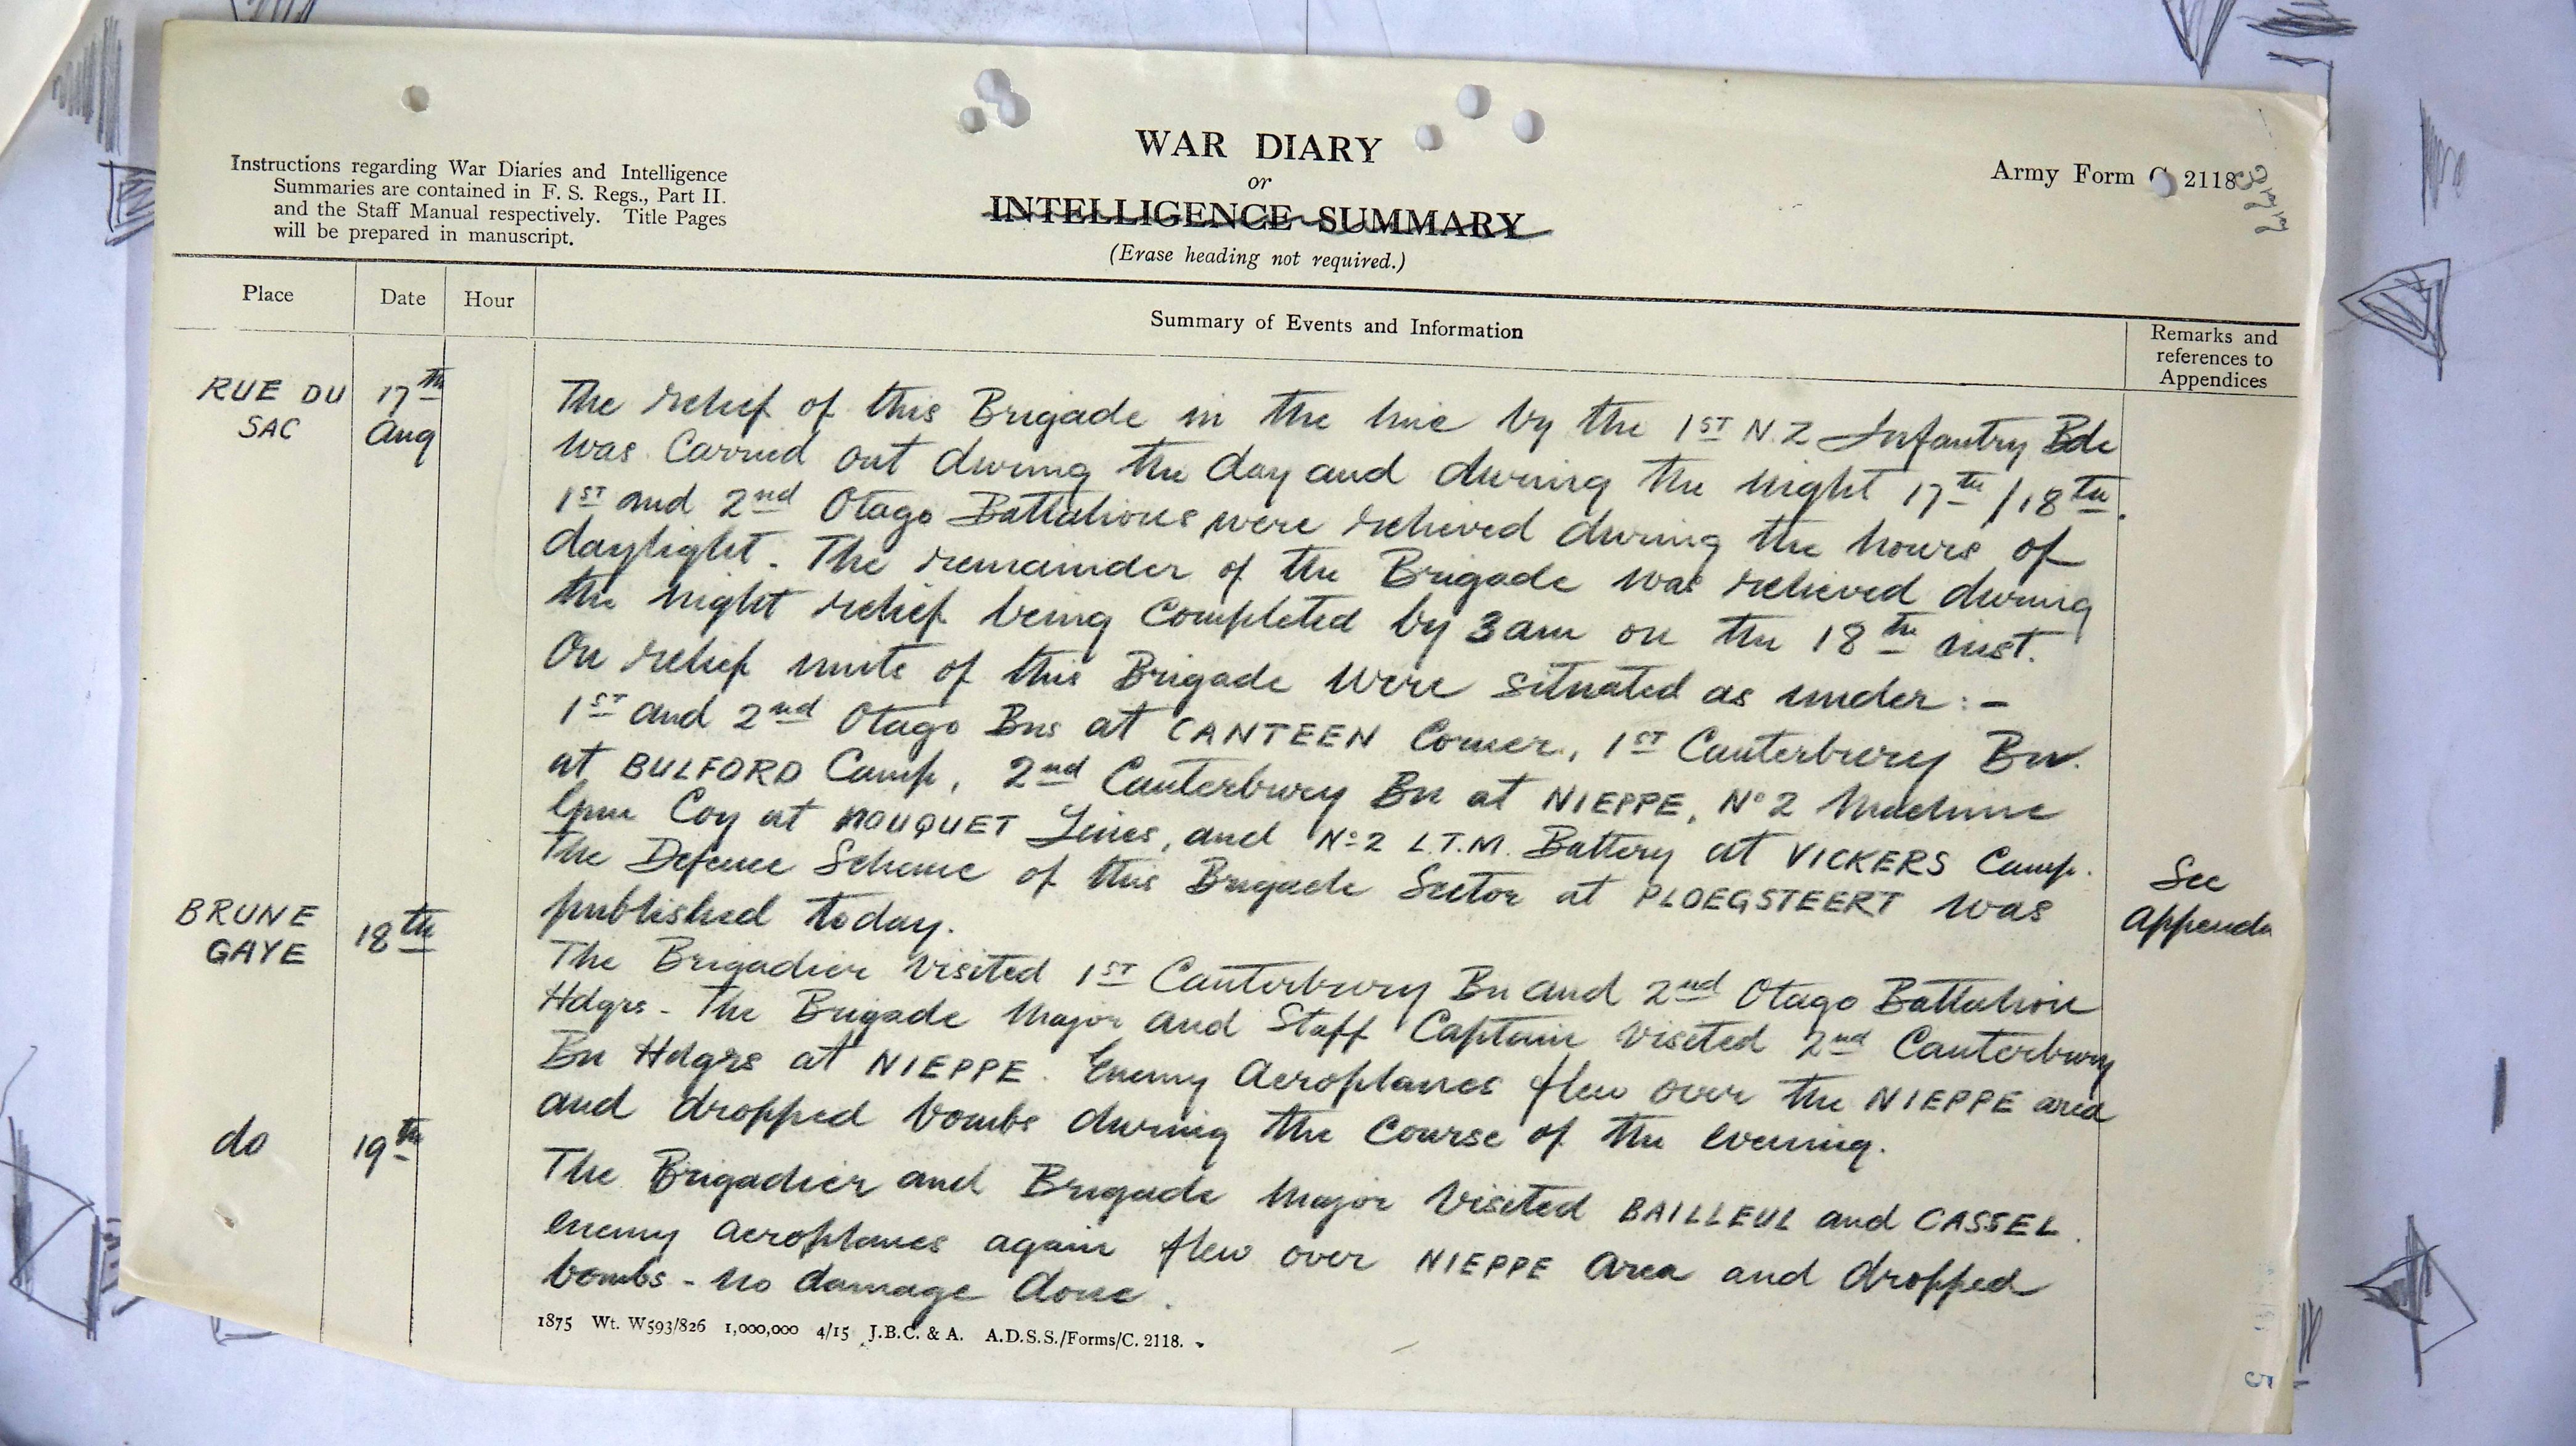 Instructions regarding War Diaries and Intelligence
Summaries are contained in F. S. Regs., Part II.
and the Staff Manual respectively. Title Pages
will be prepared in manuscript.
WAR DIARY
or
INTELLIGENCE SUMMARY
(Erase heading not required.)
Army Form C. 2118
Place Date Hour Summary of Events and Information Remarks and
references to
Appendices
RUE DU 17th
SAC Aug
The relief of this Brigade in the line by the 1ST N.Z Infantry Bde
was carried out during the day and during the night 17th/18th.
1ST and 2nd Otago Battalions were relieved during the hours of
daylight. The remainder of the Brigade was relieved during
the night relief being completed by 3am on the 18th inst.
On relief units of this Brigade were situated as under:-
1ST and 2nd Otago Bns at CANTEEN Corner, 1ST Canterbury Bn.
at BULFORD Camp, 2nd Canterbury Bn at NIEPPE, No 2 Machine
Gun Coy at MOUQUET Lines, and No 2 L.T.M. Battery at VICKERS Camp.
The Defence Scheme of this Brigade Sector at PLOEGSTEERT was
published today.
See
Appendx
BRUNE 18th
GAYE
The Brigadier visited 1ST Canterbury Bn and 2nd Otago Battalion
Hdqrs - The Brigade Major and Staff Captain visited 2nd Canterbury
Bn Hdqrs at NIEPPE. Enemy Aeroplanes flew over the NIEPPE area
and dropped bombs during the course of the evening.
do 19th
The Brigadier and Brigade Major visited BAILLEUL and CASSEL.
Enemy aeroplanes again flew over NIEPPE Area and dropped
bombs - no damage done.
1875 Wt. W593/826 1,000,000 4/15 J.B.C. & A. A.D.S.S./Forms/C. 2118.